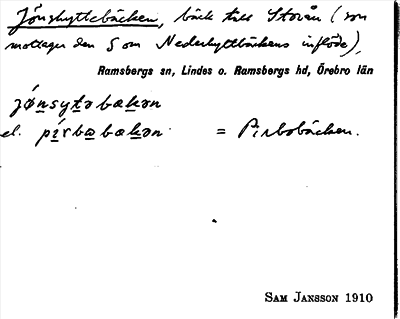 Jönshyttebäcken, bäck till Storån (som
mottager den S om Nederhyttbäckens inflöde),
Ramsbergs sn, Lindes o. Ramsbergs hd, Örebro län
jǿnsytəbækən
el. pírbəbækən = Pirbobäcken.
SAM JANSSON 1910